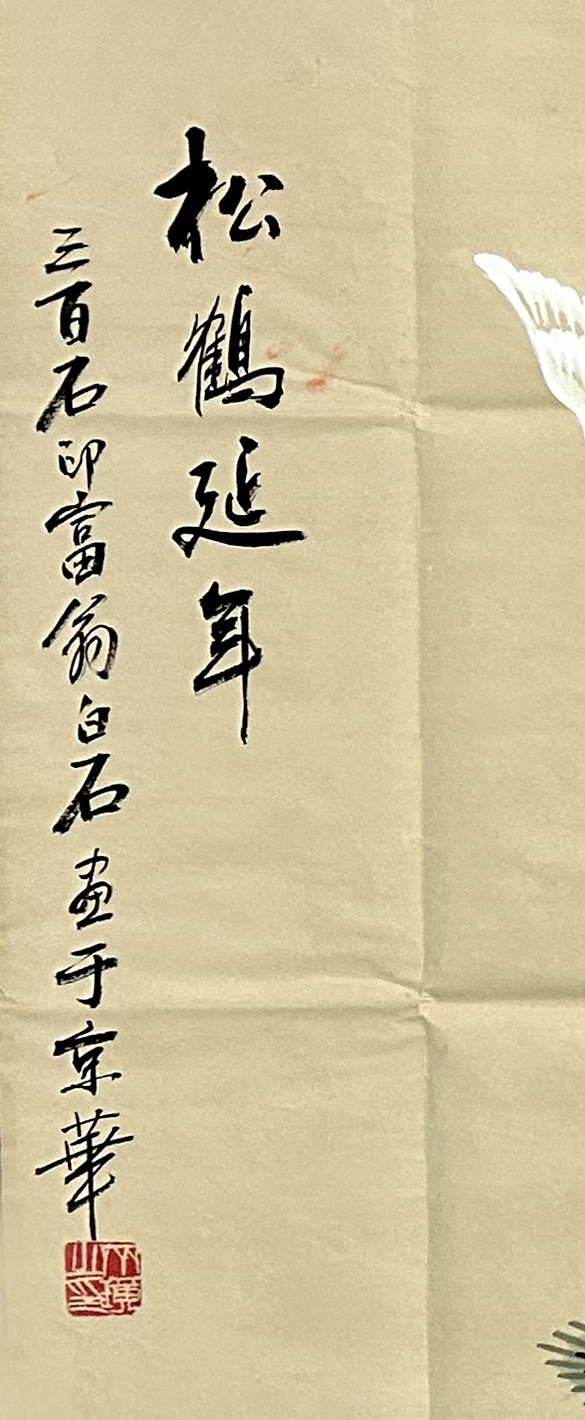 松鶴延年
三百石印富翁白石畫于京華